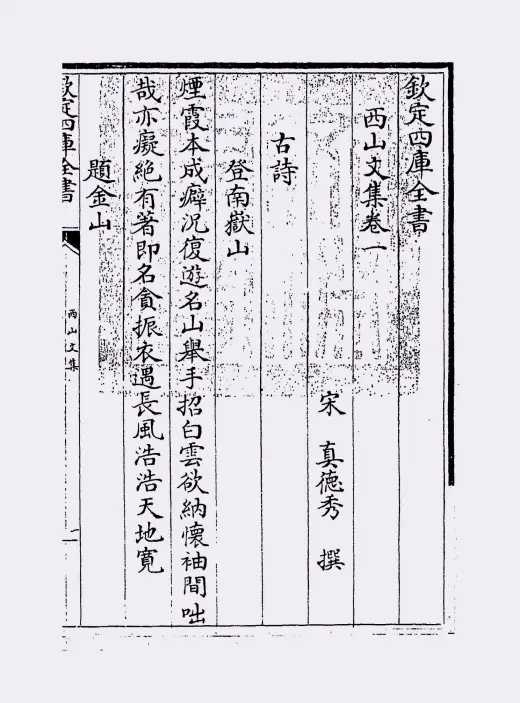 欽定四庫全書
西山文集卷一
宋 真德秀 撰
古詩
登南嶽山
煙霞本成癖況復遊名山舉手招白雲欲納懷袖間咄
哉亦癡絕有著即名貪振衣遇長風浩浩天地寛
題金山
欽定四庫全書
西山文集
一